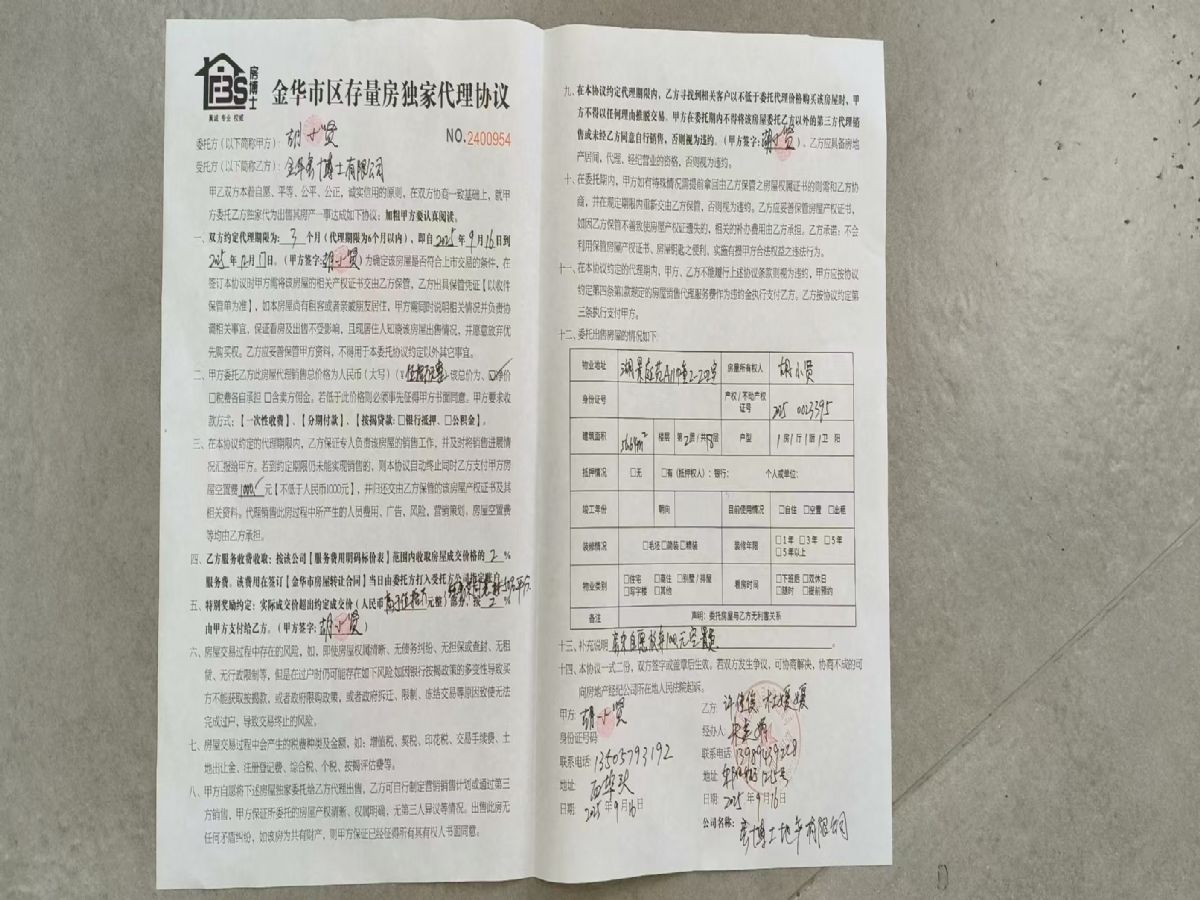 房博士
真诚 专业 权威
金华市区存量房独家代理协议
NO.2400954
委托方(以下简称甲方): 胡小贤
受托方(以下简称乙方): 金华房博士有限公司
甲乙双方本着自愿、平等、公平、公正,诚实信用的原则,在双方协商一致基础上,就甲
方委托乙方独家代为出售其房产一事达成如下协议:加粗甲方要认真阅读。
一、双方约定代理期限为: 3 个月(代理期限为6个月以内),即自2025年9月16日到
2025年12月 日。(甲方签字: 胡小贤)为确定该房屋是否符合上市交易的条件,在
签订本协议时甲方需将该房屋的相关产权证书交由乙方保管,乙方出具保管凭证【以收件
保管单为准】,如本房屋尚有租客或者亲戚朋友居住,甲方需同时说明相关情况并负责协
调相关事宜,保证看房及出售不受影响,且现居住人知晓该房屋出售情况,并愿意放弃优
先购买权。乙方应妥善保管甲方资料,不得用于本委托协议约定以外其它事宜。
二、甲方委托乙方此房屋代理销售总价格为人民币(大写)(¥ )该总价为、☑净价
□税费各自承担 □含卖方佣金。若低于此价格则必须事先征得甲方书面同意。甲方要求收
款方式:【一次性收费】、【分期付款】、【按揭贷款:□银行抵押、□公积金】。
三、在本协议约定的代理期限内,乙方保证专人负责该房屋的销售工作,并及时将销售进展情
况汇报给甲方。若到约定期限仍未能实现销售的,则本协议自动终止同时乙方支付甲方房
屋空置费1000元【不低于人民币1000元】,并归还交由乙方保管的该房屋产权证书及其
相关资料。代理销售此房过程中所产生的人员费用、广告、风险,营销策划,房屋空置费
等均由乙方承担。
四、乙方服务收费收取:按该公司【服务费用明码标价表】范围内收取房屋成交价格的 2 %
服务费。该费用在签订【金华市房屋转让合同】当日由委托方打入受托方公司指定账户
五、特别奖励约定:实际成交价超出约定成交价(人民币 元整) 按 2 %
由甲方支付给乙方。(甲方签字: 胡小贤)
六、房屋交易过程中存在的风险,如,即使房屋权属清晰、无债务纠纷、无担保或查封、无租
赁、无行政限制等,但是在过户时仍可能存在如下风险如因银行按揭政策的多变性导致买
方不能获取按揭款,或者政府限购政策,或者政府拆迁、限制、冻结交易等原因致使无法
完成过户,导致交易终止的风险。
七、房屋交易过程中会产生的税费种类及金额,如:增值税、契税、印花税、交易手续费、土
地出让金、注册登记费、综合税、个税、按揭评估费等。
八、甲方自愿将下述房屋独家委托给乙方代理出售,乙方可自行制定营销销售计划或通过第三
方销售,甲方保证所委托的房屋产权清晰、权属明确,无第三人异议等情况。出售此房无
任何矛盾纠纷,如该房为共有财产,则甲方保证已经征得所有其有权人书面同意。
九、在本协议约定代理期限内,乙方寻找到相关客户以不低于委托代理价格购买该房屋时,甲
方不得以任何理由推脱交易。甲方在委托期内不得将该房屋委托乙方以外的第三方代理销
售或未经乙方同意自行销售,否则视为违约。(甲方签字: 胡小贤)。乙方应具备房地
产居间,代理、经纪营业的资格,否则视为违约。
十、在委托期内,甲方如有特殊情况需提前拿回由乙方保管之房屋权属证书的则需和乙方协
商,并在规定期限内重新交由乙方保管,否则视为违约。乙方应妥善保管房屋产权证书,
如因乙方保管不善致使房屋产权证遗失的,相关的补办费用由乙方承担。乙方承诺:不会
利用保管房屋产权证书、房屋钥匙之便利,实施有损甲方合法权益之违法行为。
十一、在本协议约定的代理期内,甲方、乙方不能履行上述协议条款则视为违约,甲方应按协议
约定第四条第1款规定的房屋销售代理服务费作为违约金执行支付乙方,乙方按协议约定第
三条执行支付甲方。
十二、委托出售房屋的情况如下:
物业地址 湖景庭苑 房屋所有权人 胡小贤
身份证号 产权/不动产权证号 2025 0023395
建筑面积 56.64m² 楼层 第2层/共18层 户型 1房1厅1厨1卫 阳
抵押情况 □无 □有(抵押权人):银行: 个人或单位:
竣工年份 朝向 目前使用情况 □自住 □空置 □出租
装修情况 □毛坯□简装□精装 装修年限 □1年 □3年 □5年 □5年以上
物业类别 □住宅 □商住 □别墅/排屋 □写字楼 □其他 看房时间 □下班后 □双休日 □随时 □提前预约
备注 声明:委托房屋与乙方无利害关系
十三、补充说明: 房东自愿放弃1000元空置费。
十四、本协议一式二份,双方签字或盖章后生效。若双方发生争议,可协商解决,协商不成的可
向房地产经纪公司所在地人民法院起诉。
甲方: 胡小贤
身份证号码:
联系电话: 13505793192
地址: 西华头
日期: 2025年9月16
乙方: 许健俊 杜媛媛
经办人:
联系电话: 13989439228
地址:
日期: 2025年9月16日
公司名称: 房博士地产有限公司